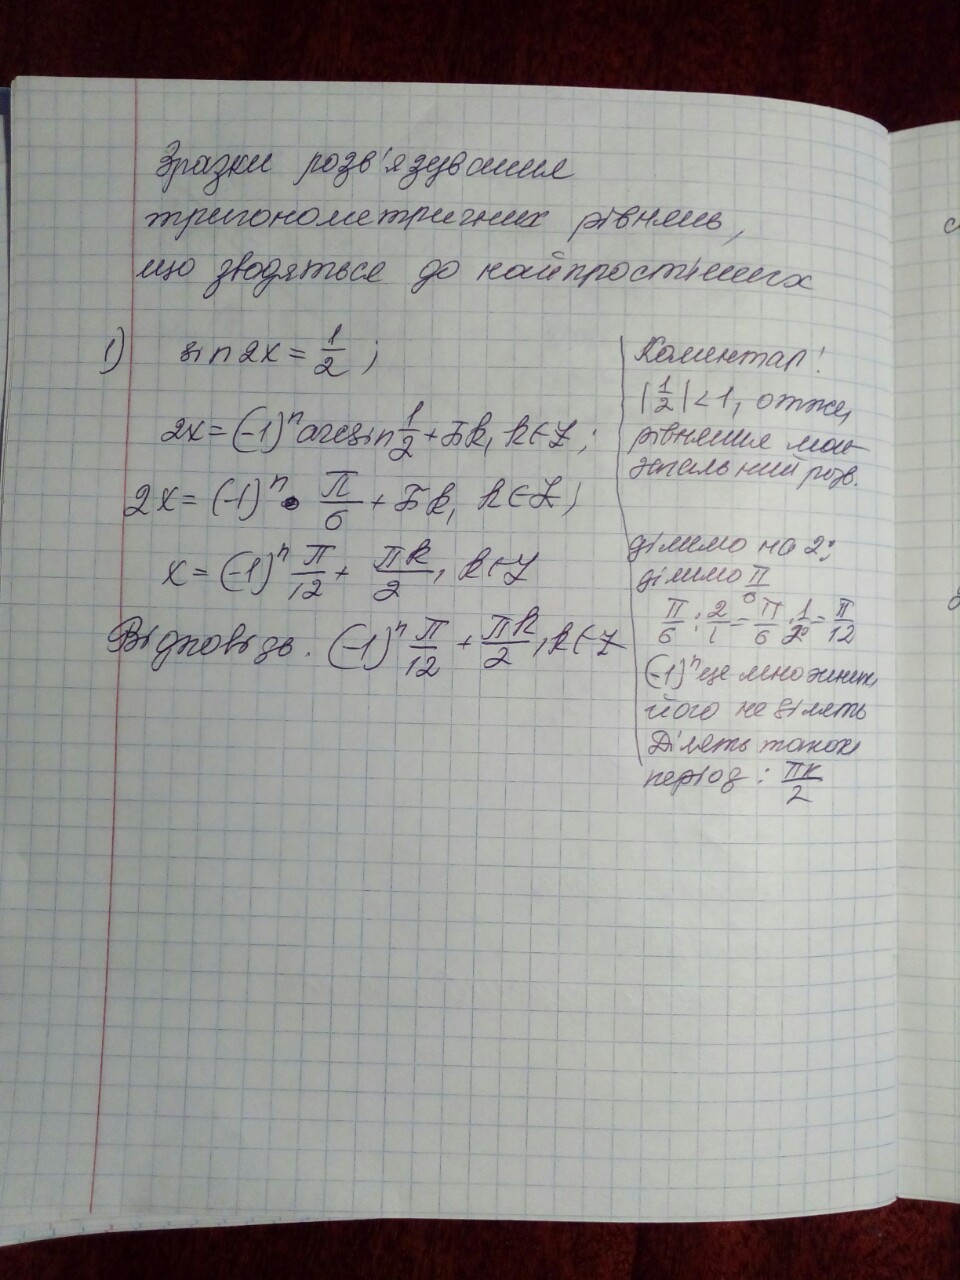 Зразки розв'язування
тригонометричних рівнянь,
що зводяться до найпростіших
1) sin 2x = 1/2 ;
2x = (-1)ⁿ arcsin 1/2 + πk, k∈Z ;
2x = (-1)ⁿ • π/6 + πk, k∈Z ;
x = (-1)ⁿ π/12 + πk/2, k∈Z
Відповідь. (-1)ⁿ π/12 + πk/2, k∈Z
Коментар!
|1/2| < 1, отже,
рівняння має
загальний розв.
ділимо на 2:
ділимо π/6
π/6 : 2/1 = π/6 · 1/2 = π/12
(-1)ⁿ це множник,
його не ділять
Ділять також
період : πk/2